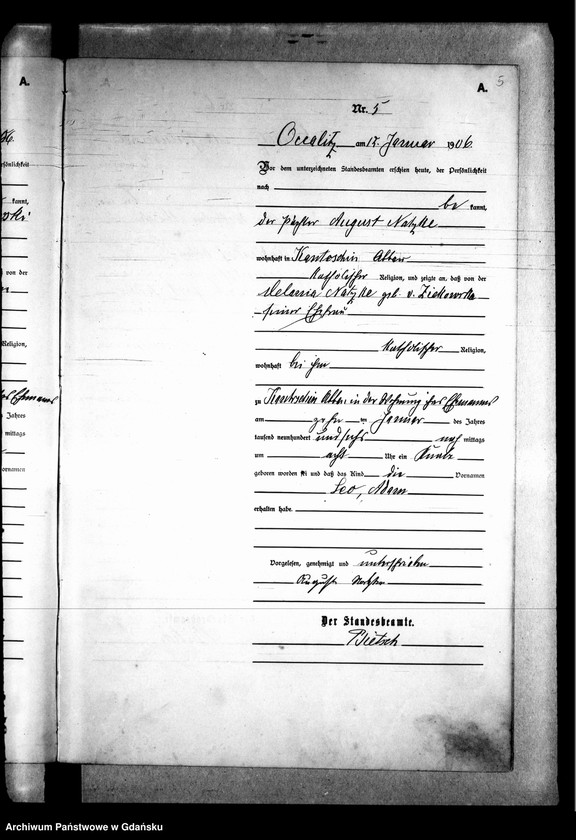 A.
A.
5
Nr. 5
Occalitz am 15. Januar 1906.
Vor dem unterzeichneten Standesbeamten erschien heute, der Persönlichkeit
nach
be kannt,
der Pächter August Natzke
wohnhaft in Kantoschin Abbau
katholischer Religion, und zeigte an, daß von der
Melania Natzke geb. v. Zielkowska
seiner Ehefrau
katholischer Religion,
wohnhaft bei ihm
zu Kantoschin Abbau in der Wohnung ihres Ehemannes
am zehn ten Januar des Jahres
tausend neunhundert und sechs nach mittags
um acht Uhr ein Knabe
geboren worden sei und daß das Kind die Vornamen
Leo, Adam
erhalten habe.
Vorgelesen, genehmigt und unterschrieben
August Natzke
Der Standesbeamte.
Dietsch
rsönlichkeit
kannt,
ß von der
Religion,
res Ehemannes
s Jahres
mittags
ornamen
Archiwum Państwowe w Gdańsku